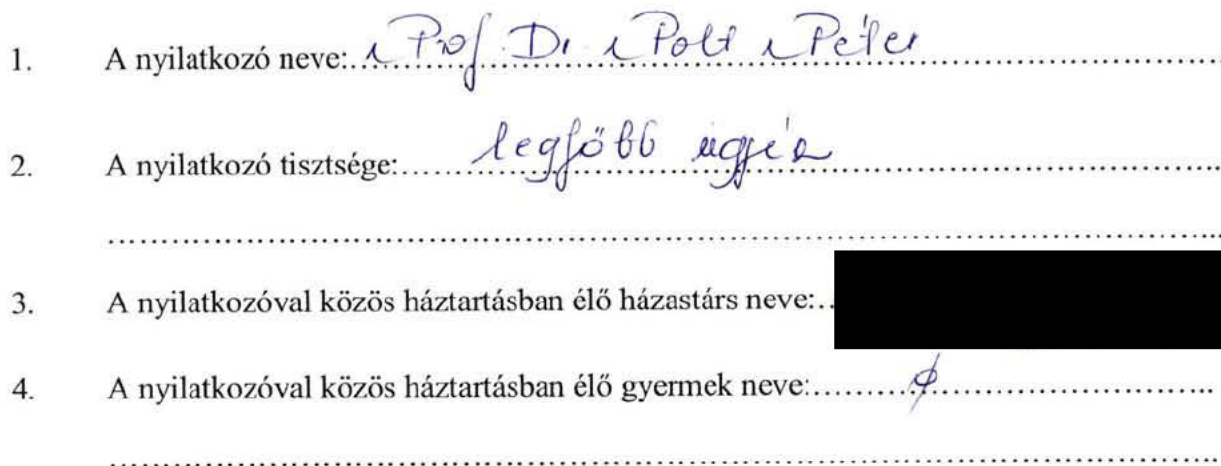 1. A nyilatkozó neve: Prof. Dr. Polt Péter
2. A nyilatkozó tisztsége: legfőbb ügyész
3. A nyilatkozóval közös háztartásban élő házastárs neve:
4. A nyilatkozóval közös háztartásban élő gyermek neve: ∅